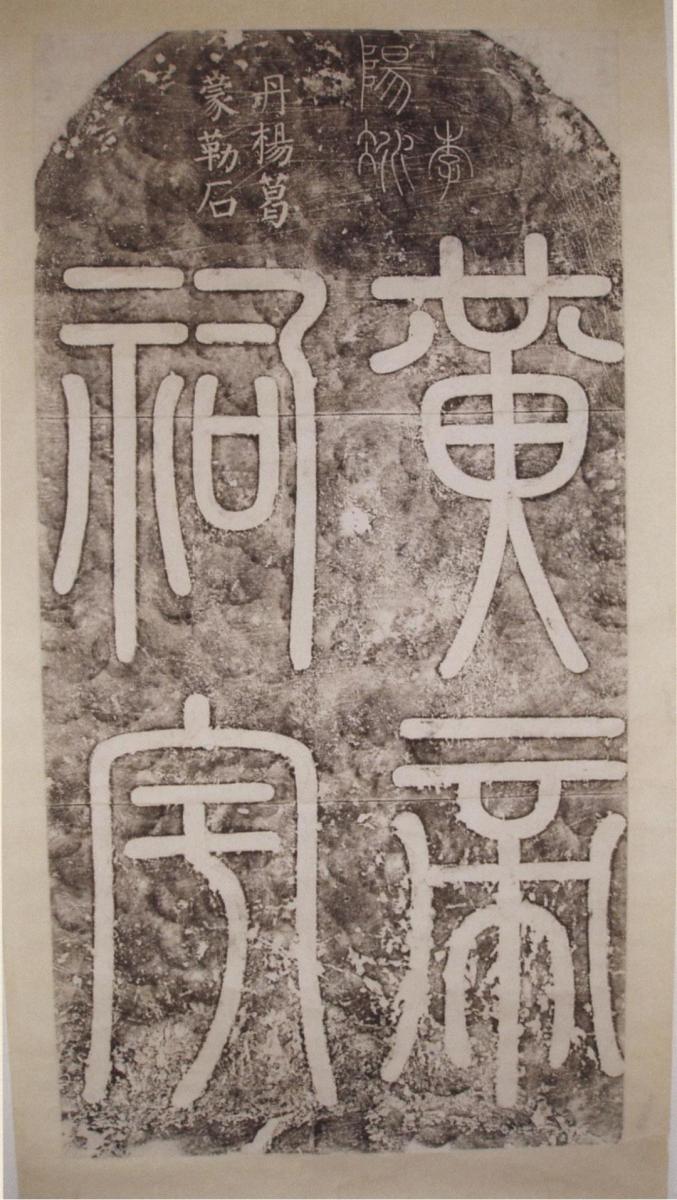 黃帝
祠宇
李
陽冰
丹楊葛
蒙勒石